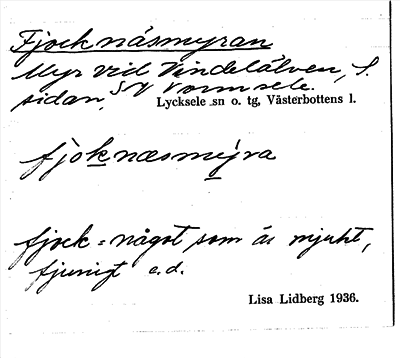 Fjocknäsmyran
Myr vid Vindelälven, S.
sidan, SV Vormsele.
Lycksele sn o. tg, Västerbottens l.
fjoknæsmýra
fjock = något som är mjukt,
fjunigt e.d.
Lisa Lidberg 1936.